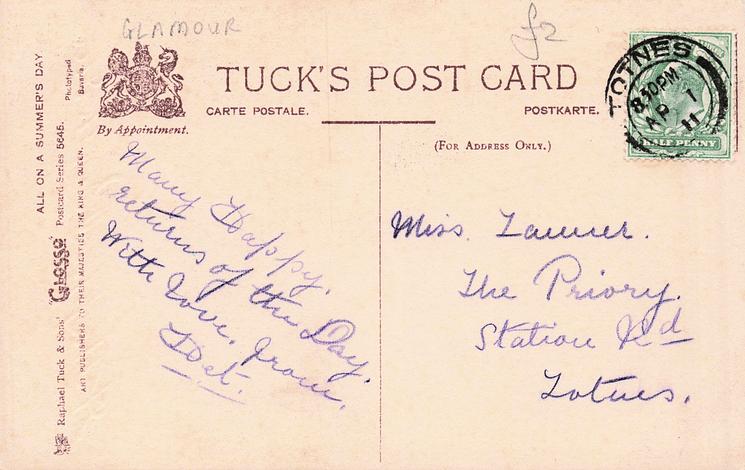 GLAMOUR
£2
TUCK'S POST CARD
CARTE POSTALE.
POSTKARTE.
By Appointment.
(FOR ADDRESS ONLY.)
TOTNES
8.30PM
AP 1
11
HALF PENNY
ALL ON A SUMMER'S DAY
Phototyped
Bavaria.
Raphael Tuck & Sons' "Glosso" Postcard Series 5645.
ART PUBLISHERS TO THEIR MAJESTIES THE KING & QUEEN.
Many Happy
returns of the Day.
With love, from
Miss.
The Priory.
Station Rd
Totnes.